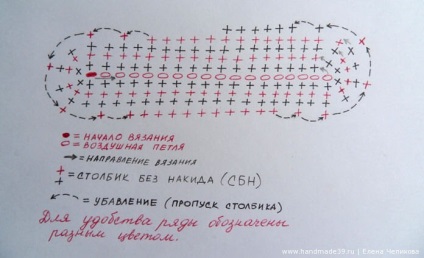 = НАЧАЛО ВЯЗАНИЯ
= ВОЗДУШНАЯ ПЕТЛЯ
= НАПРАВЛЕНИЕ ВЯЗАНИЯ
= СТОЛБИК БЕЗ НАКИДА (СБН)
= УБАВЛЕНИЕ (ПРОПУСК СТОЛБИКА)
Для удобства ряды обозначены
разным цветом.
www.handmade39.ru | Елена